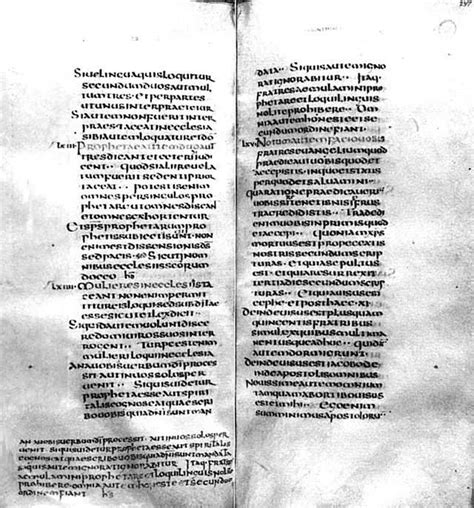 SIUELINGUAQUISLOQUITUR
SECUNDUMDUOSAUTMUL
TUMTRES· ETPERPARTES
UTUNUSINTERPRAETETUR
SIAUTEMNONFUERITINTER
PRAESTACEATINECCLESIA
SIBIAUTEMLOQUATURETDO
LXIII PROPHETAEAUTEMDUO
AUTTRESDICANTETCETERIIUDI
CENT· QUODSIALIIREUELA
TUMFUERITSEDENTIPRIOR
TACEAT· POTESTISENIM
OMNESPERSINGULOSPRO
PHETAREUTOMNESDISCAN
ETOMNESEXHORTENTUR
ETSPSPROPHETARUMPRO
PHETISSUBIECTISUNT· NON
ENIMESTDISSENSIONISDS
SEDPACIS· SICUTINOM
NIBUSECCLESIISSCORUM
DOCEO hs
LXIIII MULIERESINECCLESIISTA
CEANTNONENIMPERMIT
TITUREISLOQUISEDSUBDITAS
ESSESICUTETLEXDICIT·
SIQUIDAUTEMUOLUNTDISCE
REDOMIUIROSSUOSINTER
ROGENT· TURPEESTENIM
MULIERILOQUIINECCLESIA
ANAUOBISUERBUMDIPROCES
SIT· AUTINUOSSOLOSPER
UENIT· SIQUISUIDETUR
PROPHETAESSEAUTSPI
RITALISCOGNOSCATQUAESCRI
BOUOBISQUIADNISUNT
ANAUOBISUERBUMDIPROCESSIT· AUTINUOSSOLOSPER
UENIT SIQUISUIDETURPROPHETAESSEAUTSPIRITALIS
COGNOSCATQUAESCRIBOUOBISQUIADNISUNTMANDATA
SIQUISAUTEMIGNORATIGNORABITUR· ITAQ·FRATRES
AEMULAMINIPROPHETAREETLOQUILINGUISNOLITE
PROHIBEREOMNIAAUTEMHONESTEETSECUNDUM
ORDINEMFIANT hs
DATA· SIQUISAUTEMIGNO
RATIGNORABITUR· ITAQ·
FRATRESAEMULAMINIPRO
PHETAREETLOQUILINGUIS
NOLITEPROHIBERE· OM
NIAAUTEMHONESTEETSE
CUNDUMORDINEMFIANT·
LXV NOTUMAUTEMFACIOUOBIS
FRATRESEUANGELIUMQUOD
PRAEDICAUIUOBISQUODET
ACCEPISTISINQUOETSTATIS
PERQUODETSALUAMINI·
QUARATIONEPRAEDICAUERIM
UOBISSITENETISNISIFRUS
TRACREDIDISTIS· TRADIDI
ENIMUOBISINPRIMISQUOD
ETACCEPI· QUONIAMXPS
MORTUUSESTPROPECCATIS
NOSTRISSECUNDUMSCRIP
TURAS· ETQUIASEPULTUS
EST· ETQUIARESURREXIT
TERTIADIESECUNDUMSCRIP
TURAS· ETQUIAUISUSEST
CEPHEETPOSTHAECXI·
DEINDEUISUSESTPLUSQUAM
QUINGENTISFRATRIBUS
SIMULEXQUIBUSMULTIMA
NENTUSQUEADHUC· QUIDA
AUTEMDORMIERUNT·
DEINDEUISUSESTIACOBODE
INDEAPOSTOLISOMNIBUS
NOUISSIMEAUTEMOMNIUM
TAMQUAMABORTIUOUISUS
ESTETMIHI· EGOENIM
SUMMINIMUSAPOSTOLORU